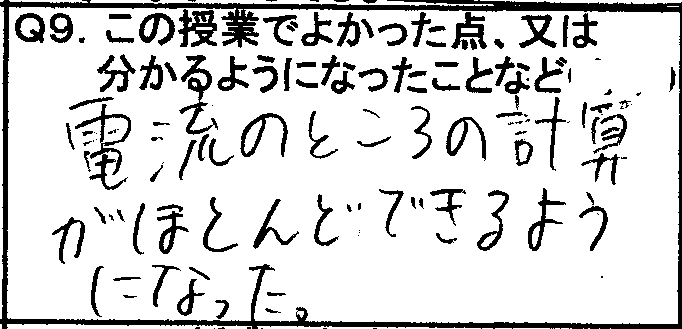 Q9. この授業でよかった点、又は
分かるようになったことなど
電流のところの計算
がほとんどできるよう
になった。